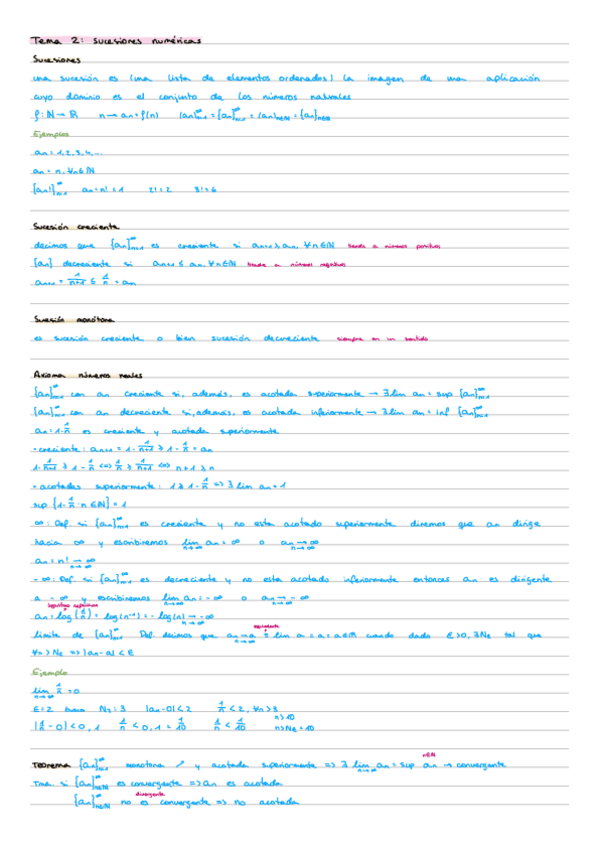 Tema 2: sucesiones numéricas
Sucesiones
una sucesión es (una lista de elementos ordenados) la imagen de una aplicación
cuyo dominio es el conjunto de los números naturales
f: ℕ → ℝ n → an = f(n) (an)ₙ₌₁^∞ = {an}ₙ₌₁^∞ = (an)n∈ℕ = {an}n∈ℕ
Ejemplos
an = 1, 2, 3, 4, ...
an = n, ∀n∈ℕ
{an!}ₙ₌₁^∞ an = n! = 1 2! = 2 3! = 6
Sucesión creciente
decimos que {an}ₙ₌₁^∞ es creciente si an+1 ≥ an, ∀n∈ℕ tiende a números positivos
{an} decreciente si an+1 ≤ an, ∀n∈ℕ tiende a números negativos
an+1 = 1/n+1 ≤ 1/n = an
Sucesión monótona
es sucesión creciente o bien sucesión decreciente siempre en un sentido
Axioma números reales
{an}ₙ₌₁^∞ con an creciente si, además, es acotada superiormente → ∃ lim an = sup {an}ₙ₌₁^∞
{an}ₙ₌₁^∞ con an decreciente si, además, es acotada inferiormente → ∃ lim an = inf {an}ₙ₌₁^∞
an = 1 - 1/n es creciente y acotada superiormente
• creciente: an+1 = 1 - 1/n+1 ≥ 1 - 1/n = an
1 - 1/n+1 ≥ 1 - 1/n <=> 1/n ≥ 1/n+1 <=> n+1 ≥ n
• acotadas superiormente: 1 ≥ 1 - 1/n => ∃ lim an = 1
sup {1 - 1/n : n∈ℕ} = 1
∞: Def si {an}ₙ₌₁^∞ es creciente y no esta acotado superiormente diremos que an dirige
hacia ∞ y escribiremos lim n→∞ an = ∞ o an n→∞ → ∞
an = n! n→∞ → ∞
- ∞: Def si {an}ₙ₌₁^∞ es decreciente y no esta acotado inferiormente entonces an es dirigente
a - ∞ y escribiremos lim n→∞ an = - ∞ o an n→∞ → - ∞
an = log (1/n) = log(n⁻¹) = - log(n) n→∞ → - ∞
equivalente
limite de {an}ₙ₌₁^∞ Def decimos que an → a = lim an = a = a∈ℝ cuando dado ε > 0, ∃Nε tal que
∀n > Nε => |an - a| < ε
Ejemplo
lim n→∞ 1/n = 0
ε = 2 N₂ = 3 |an - 0| < 2 1/n < 2, ∀n > 3
|1/n - 0| < 0,1 1/n < 0,1 = 1/10 1/n < 1/10 n > 10 n > Nε = 10
Teorema {an}ₙ₌₁^∞ monótona ↗ y acotada superiormente => ∃ lim n→∞ an = sup n∈ℕ an → convergente
Tma. si {an}n∈ℕ es convergente => an es acotada
divergente
{an}n∈ℕ no es convergente => no acotada